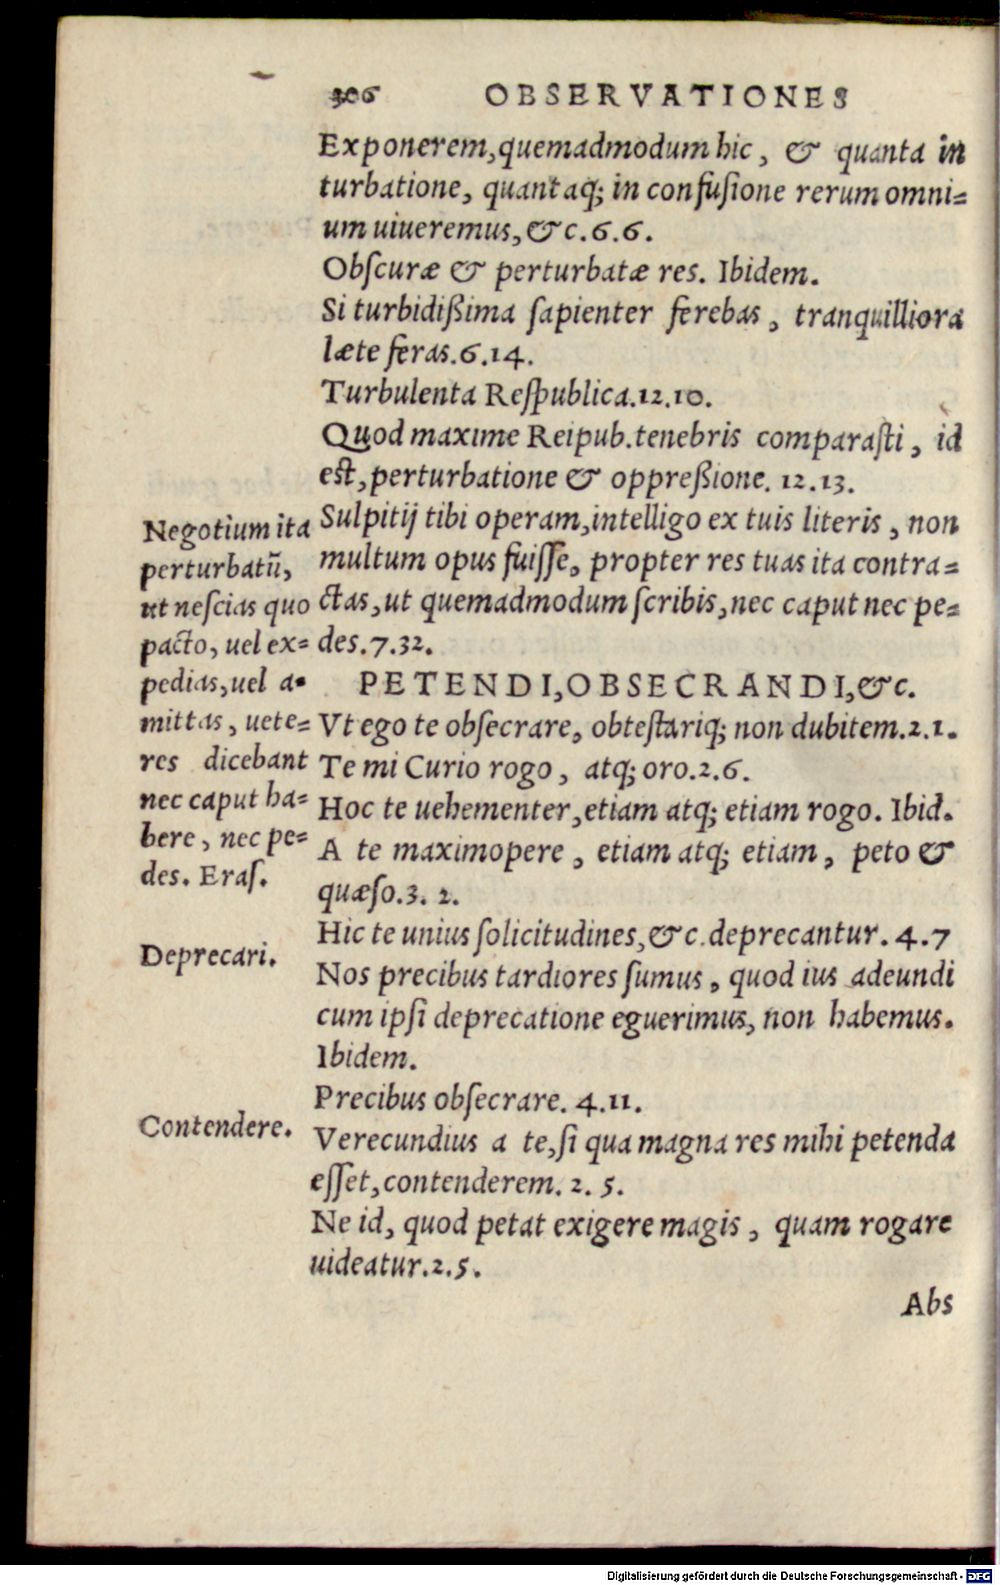 306 OBSERVATIONES
Exponerem,quemadmodum hic, & quanta in
turbatione, quantaq; in confuſione rerum omni=
um uiueremus,&c.6.6.
Obſcuræ & perturbatæ res. Ibidem.
Si turbidißima ſapienter ferebas, tranquilliora
læte feras.6.14.
Turbulenta Reſpublica.12.10.
Quod maxime Reipub.tenebris comparaſti, id
eſt,perturbatione & oppreßione. 12.13.
Sulpitij tibi operam,intelligo ex tuis literis, non
multum opus fuiſſe, propter res tuas ita contra=
ctas,ut quemadmodum ſcribis,nec caput nec pe=
des.7.32.
Negotium ita
perturbatū,
ut neſcias quo
pacto, uel ex=
pedias,uel a=
mittas, uete=
res dicebant
nec caput ha=
bere, nec pe=
des. Eraſ.
PETENDI,OBSECRANDI,&c.
Vt ego te obſecrare, obteſtariq; non dubitem.2.1.
Te mi Curio rogo, atq; oro.2.6.
Hoc te uehementer,etiam atq; etiam rogo. Ibid.
A te maximopere, etiam atq; etiam, peto &
quæſo.3. 2.
Hic te unius ſolicitudines,&c.deprecantur. 4.7
Deprecari.
Nos precibus tardiores ſumus, quod ius adeundi
cum ipſi deprecatione eguerimus, non habemus.
Ibidem.
Precibus obſecrare. 4.11.
Contendere.
Verecundius a te,ſi qua magna res mihi petenda
eſſet,contenderem. 2. 5.
Ne id, quod petat exigere magis, quam rogare
uideatur.2.5.
Abs
Digitalisierung gefördert durch die Deutsche Forschungsgemeinschaft - DFG